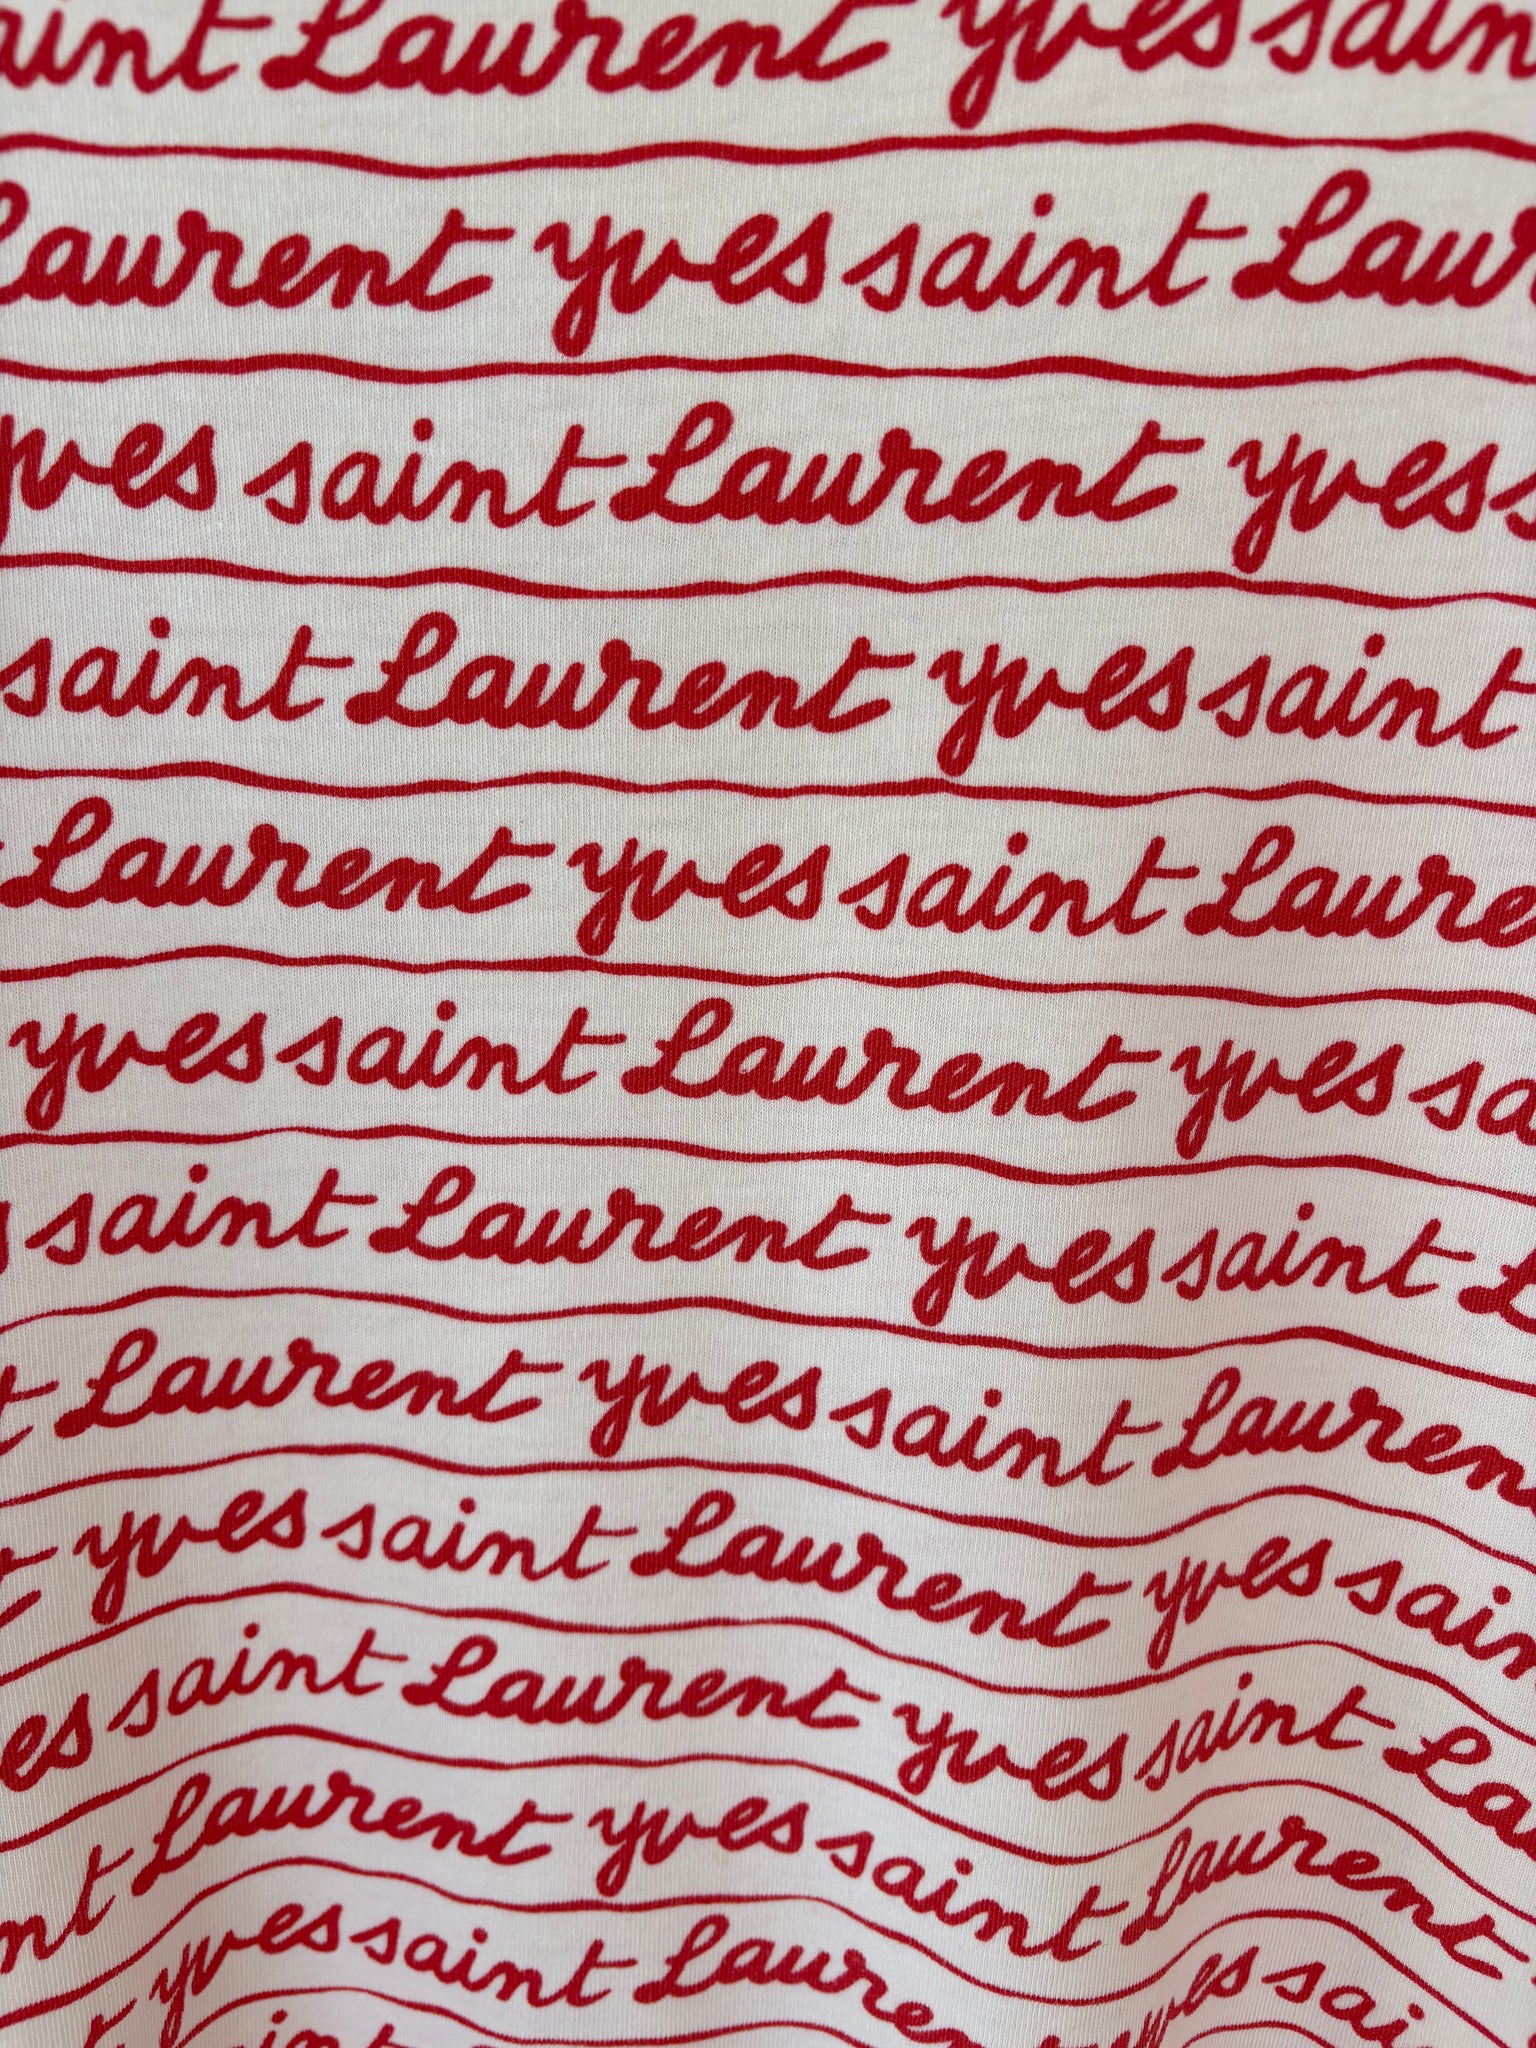 aint Laurent yves sain
Laurent yves saint Laur
yves saint Laurent yves s
saint Laurent yves saint
Laurent yves saint Laure
yves saint Laurent yves sa
saint Laurent yves saint L
t Laurent yves saint Lauren
t yves saint Laurent yves sain
es saint Laurent yves saint La
nt Laurent yves saint Laurent
t yves saint Laurent yves sai
aint